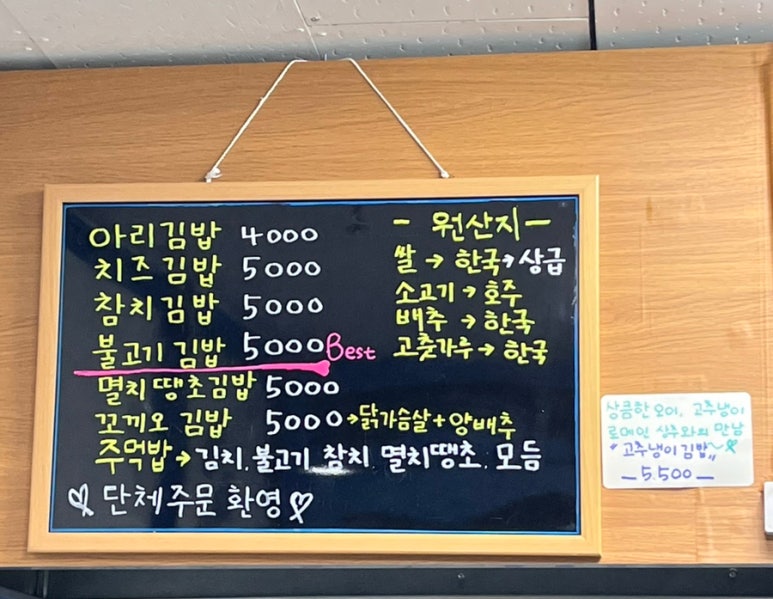 아리김밥 4000
치즈김밥 5000
참치김밥 5000
불고기 김밥 5000 Best
멸치땡초김밥 5000
꼬끼오 김밥 5000→닭가슴살+양배추
주먹밥→김치, 불고기, 참치, 멸치땡초, 모듬
♡ 단체주문 환영 ♡
- 원산지 -
쌀 → 한국→상급
소고기 → 호주
배추 → 한국
고춧가루 → 한국
상큼한 오이, 고추냉이
로메인 상추와의 만남
"고추냉이 김밥"~
- 5.500 -